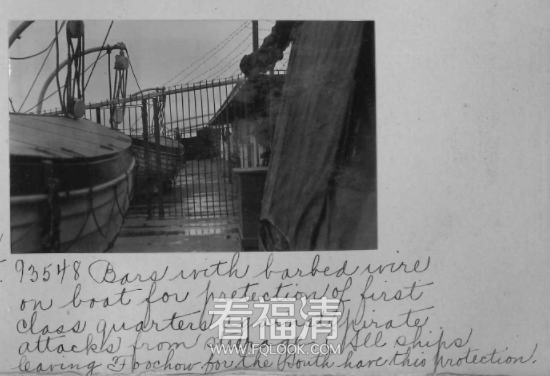 93548 Bars with barbed wire
on boat for protection of first
class quarters pirate
attacks from All ships
leaving Foochow for the South have this protection.
看福清
WWW.FQLOOK.COM